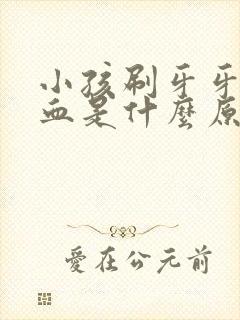 小孩刷牙牙
血是什麼原
愛在公元前